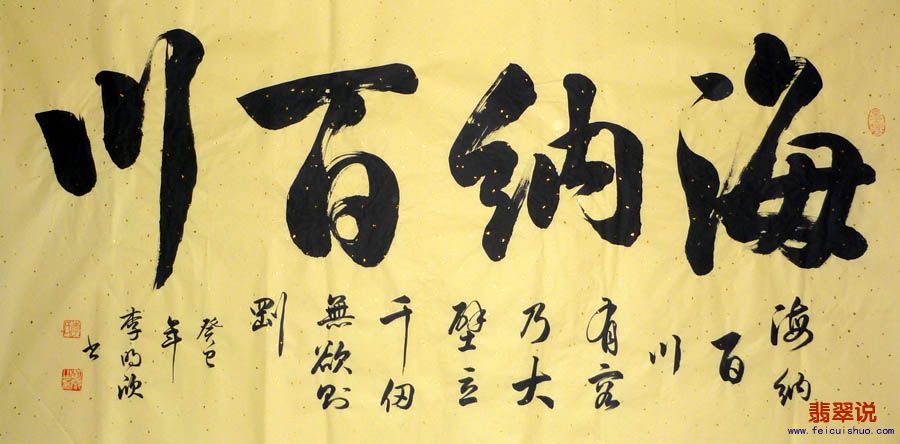 海納百川
海納
百
川
有容
乃大
壁立
千仞
無欲則
剛
癸巳
年
李明欣
书
翡翠说
www.feicuishuo.com